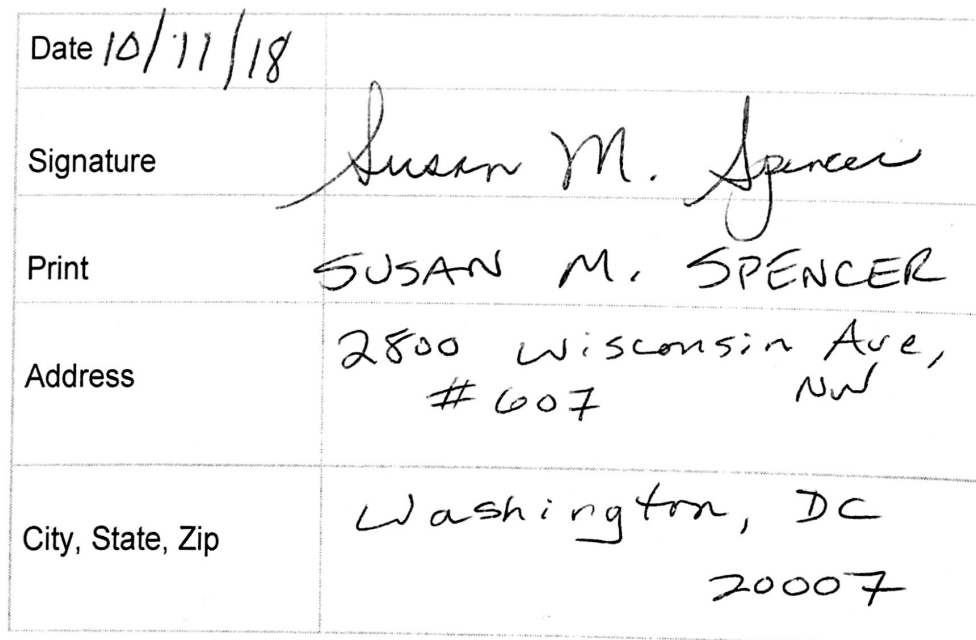 Date 10/11/18
Signature Susan M. Spencer
Print SUSAN M. SPENCER
Address 2800 Wisconsin Ave,
#607 NW
City, State, Zip Washington, DC
20007